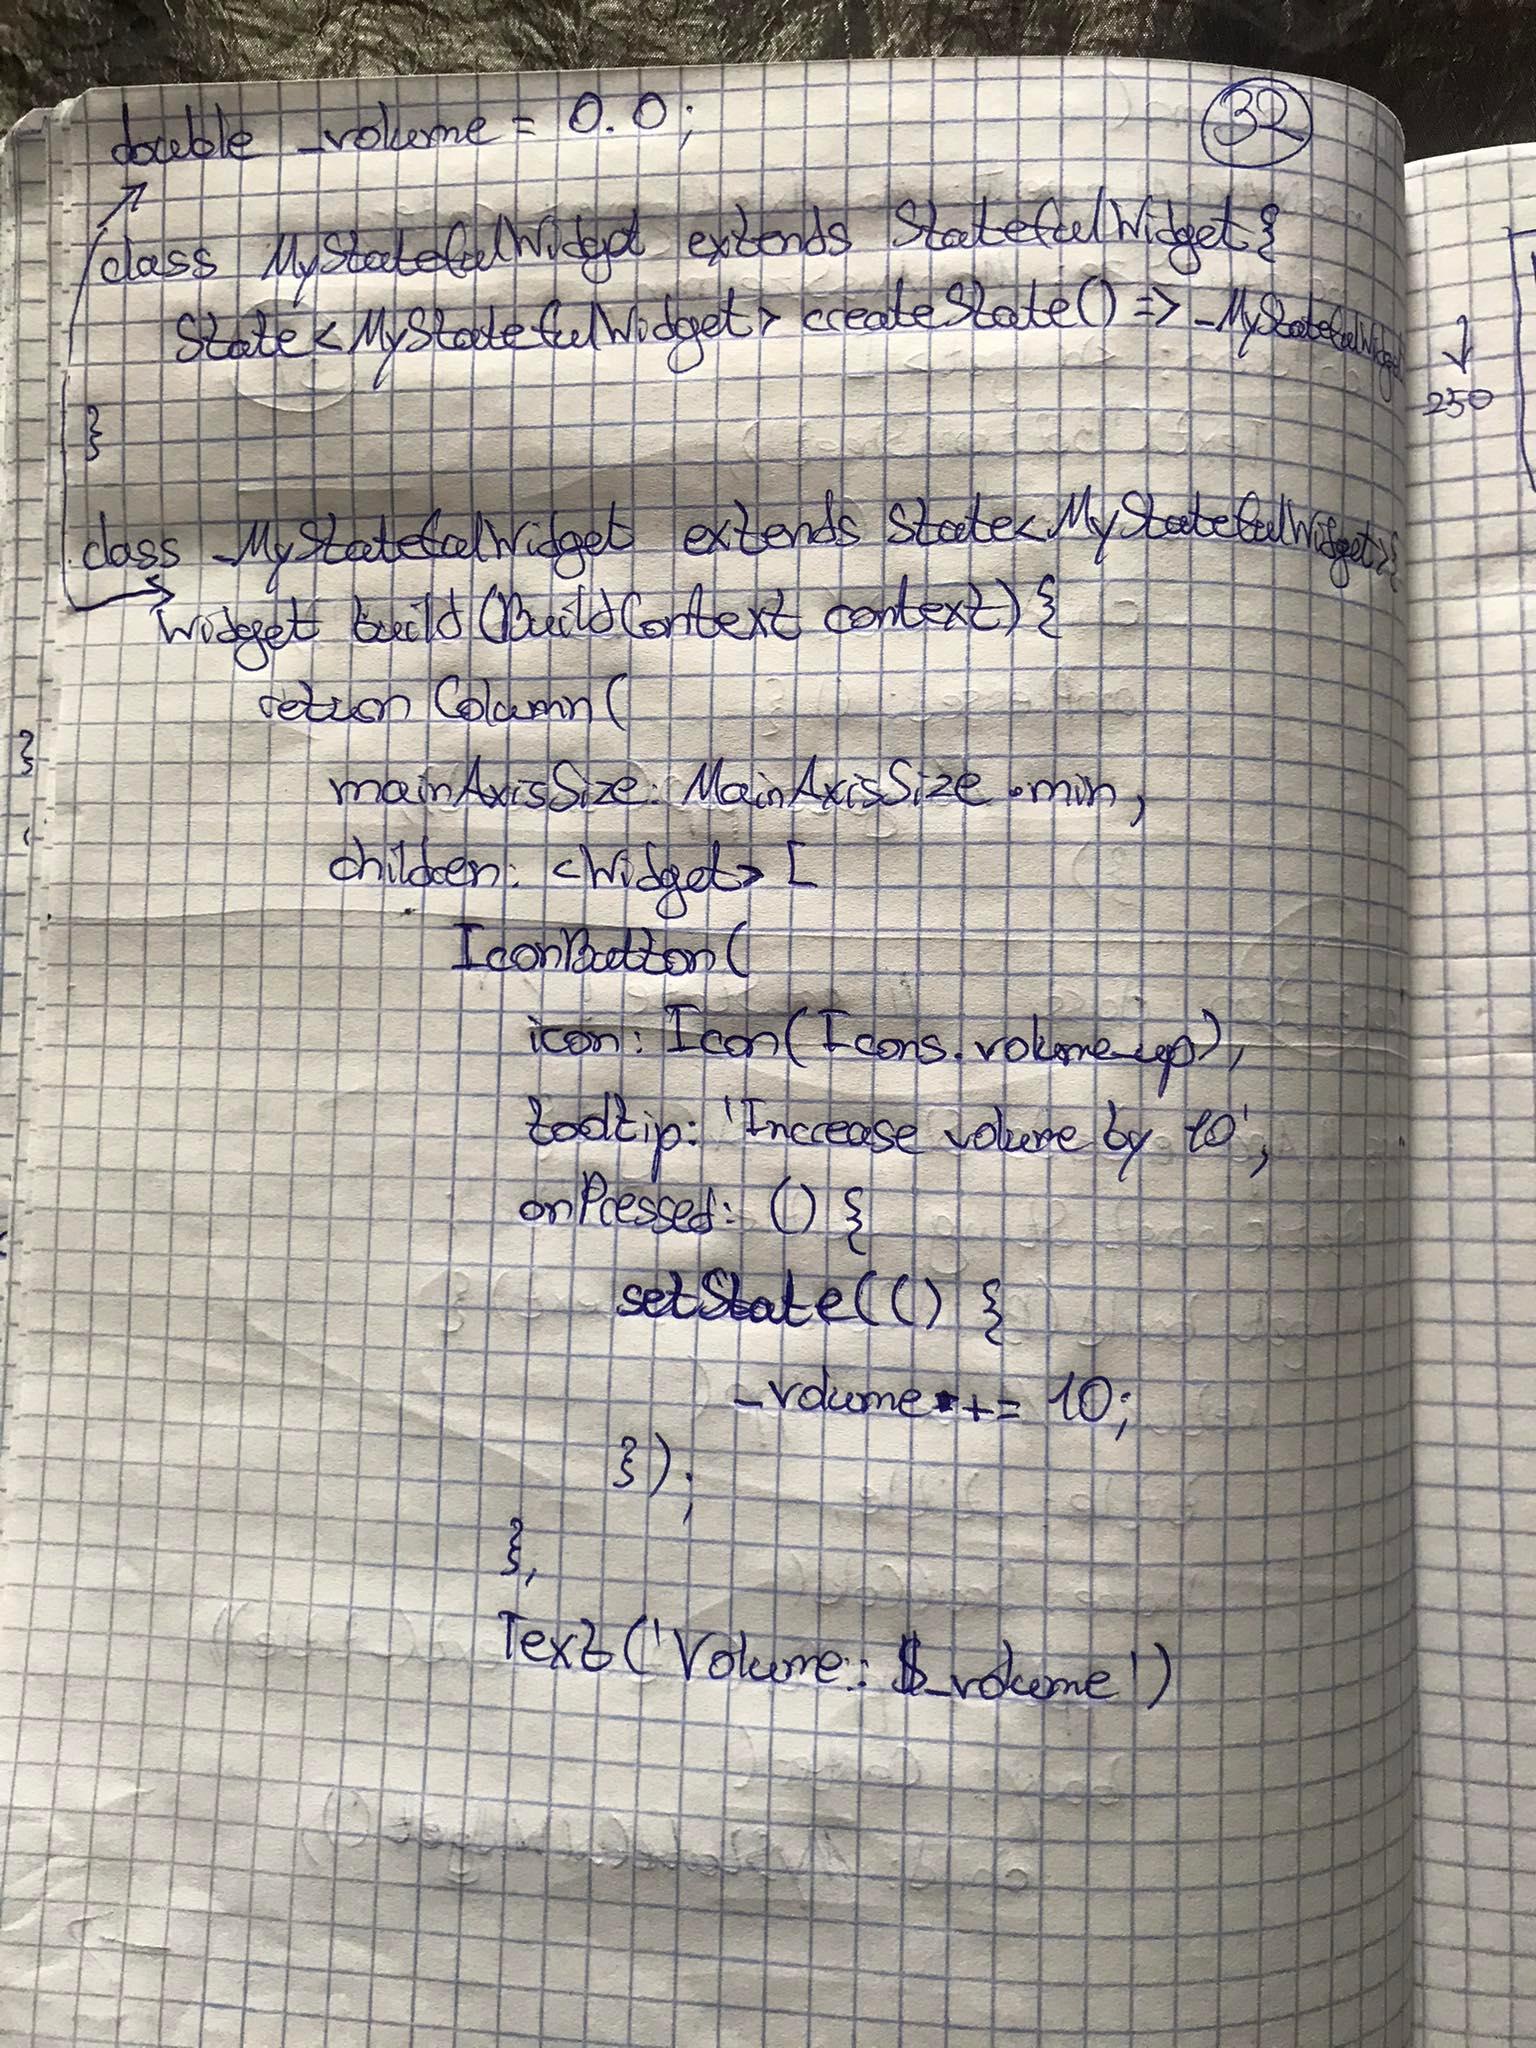 32
double _volume = 0.0;
class MyStatefulWidget extends StatefulWidget{
State<MyStatefulWidget> createState() => _MyStatefulWidget
}
class _MyStatefulWidget extends State<MyStatefulWidget>{
Widget build (BuildContext context) {
return Column(
mainAxisSize: MainAxisSize.min,
children: <Widget> [
IconButton(
icon: Icon(Icons.volume_up),
tooltip: 'Increase volume by 10',
onPressed: () {
setState(() {
_volume += 10;
});
},
Text('Volume: $_volume')
}
250